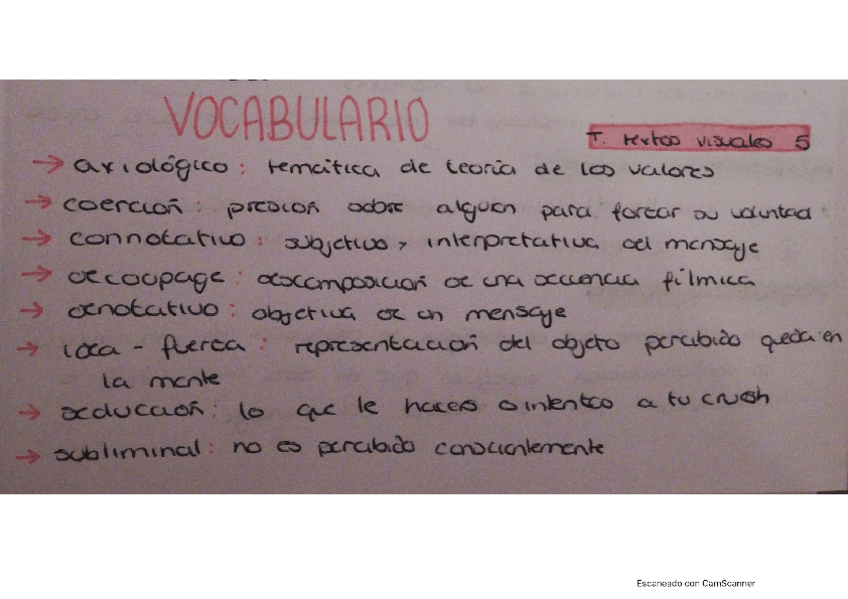 VOCABULARIO
T. textos visuales 5
→ axiológico: temática de teoría de los valores
→ coerción: presión sobre alguien para forzar su voluntad
→ connotativo: subjetivo, interpretativa del mensaje
→ decoupage: descomposición de una secuencia fílmica
→ denotativo: objetiva de un mensaje
→ idea - fuerza: representación del objeto percibido queda en
la mente
→ seducción: lo que le haces o intentas a tu crush
→ subliminal: no es percibido conscientemente
Escaneado con CamScanner